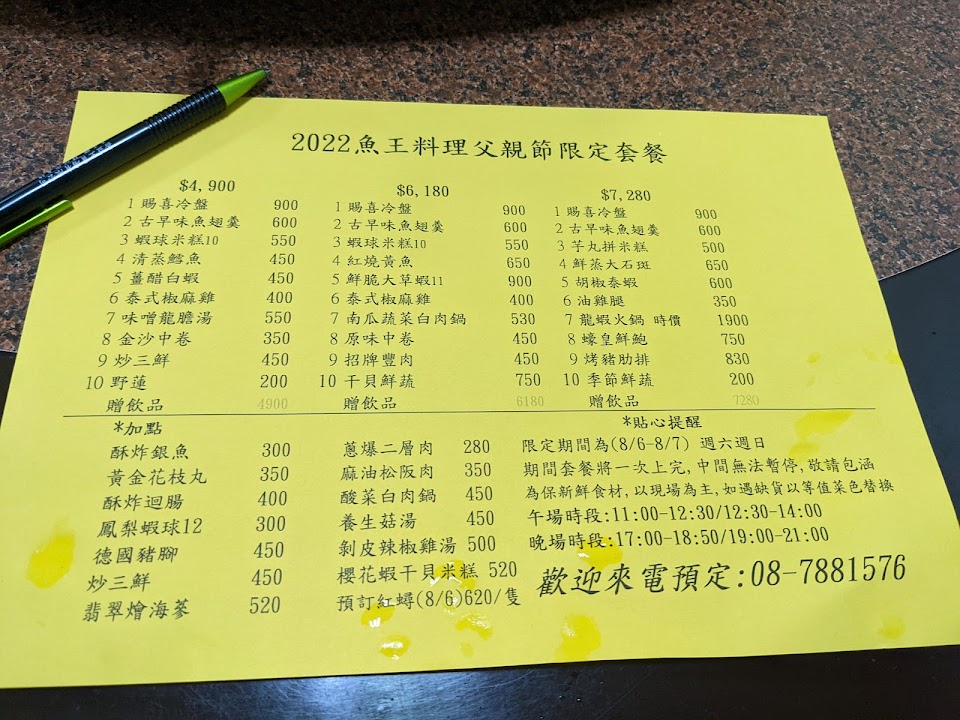 2022魚王料理父親節限定套餐
$4,900
1 賜喜冷盤 900
2 古早味魚翅羹 600
3 蝦球米糕10 550
4 清蒸鱈魚 450
5 薑醋白蝦 450
6 泰式椒麻雞 400
7 味噌龍膽湯 550
8 金沙中卷 350
9 炒三鮮 450
10 野蓮 200
贈飲品 4900
$6,180
1 賜喜冷盤 900
2 古早味魚翅羹 600
3 蝦球米糕10 550
4 紅燒黃魚 650
5 鮮脆大草蝦11 900
6 泰式椒麻雞 400
7 南瓜蔬菜白肉鍋 530
8 原味中卷 450
9 招牌豐肉 450
10 干貝鮮蔬 750
贈飲品 6180
$7,280
1 賜喜冷盤 900
2 古早味魚翅羹 600
3 芋丸拼米糕 500
4 鮮蒸大石斑 650
5 胡椒泰蝦 600
6 油雞腿 350
7 龍蝦火鍋 時價 1900
8 蠔皇鮮鮑 750
9 烤豬肋排 830
10 季節鮮蔬 200
贈飲品 7280
*加點
酥炸銀魚 300
黃金花枝丸 350
酥炸迴腸 400
鳳梨蝦球12 300
德國豬腳 450
炒三鮮 450
翡翠燴海蔘 520
蔥爆二層肉 280
麻油松阪肉 350
酸菜白肉鍋 450
養生菇湯 450
剝皮辣椒雞湯 500
櫻花蝦干貝米糕 520
預訂紅蟳(8/6)620/隻
*貼心提醒
限定期間為(8/6-8/7) 週六週日
期間套餐將一次上完,中間無法暫停,敬請包涵
為保新鮮食材,以現場為主,如遇缺貨以等值菜色替換
午場時段:11:00-12:30/12:30-14:00
晚場時段:17:00-18:50/19:00-21:00
歡迎來電預定:08-7881576